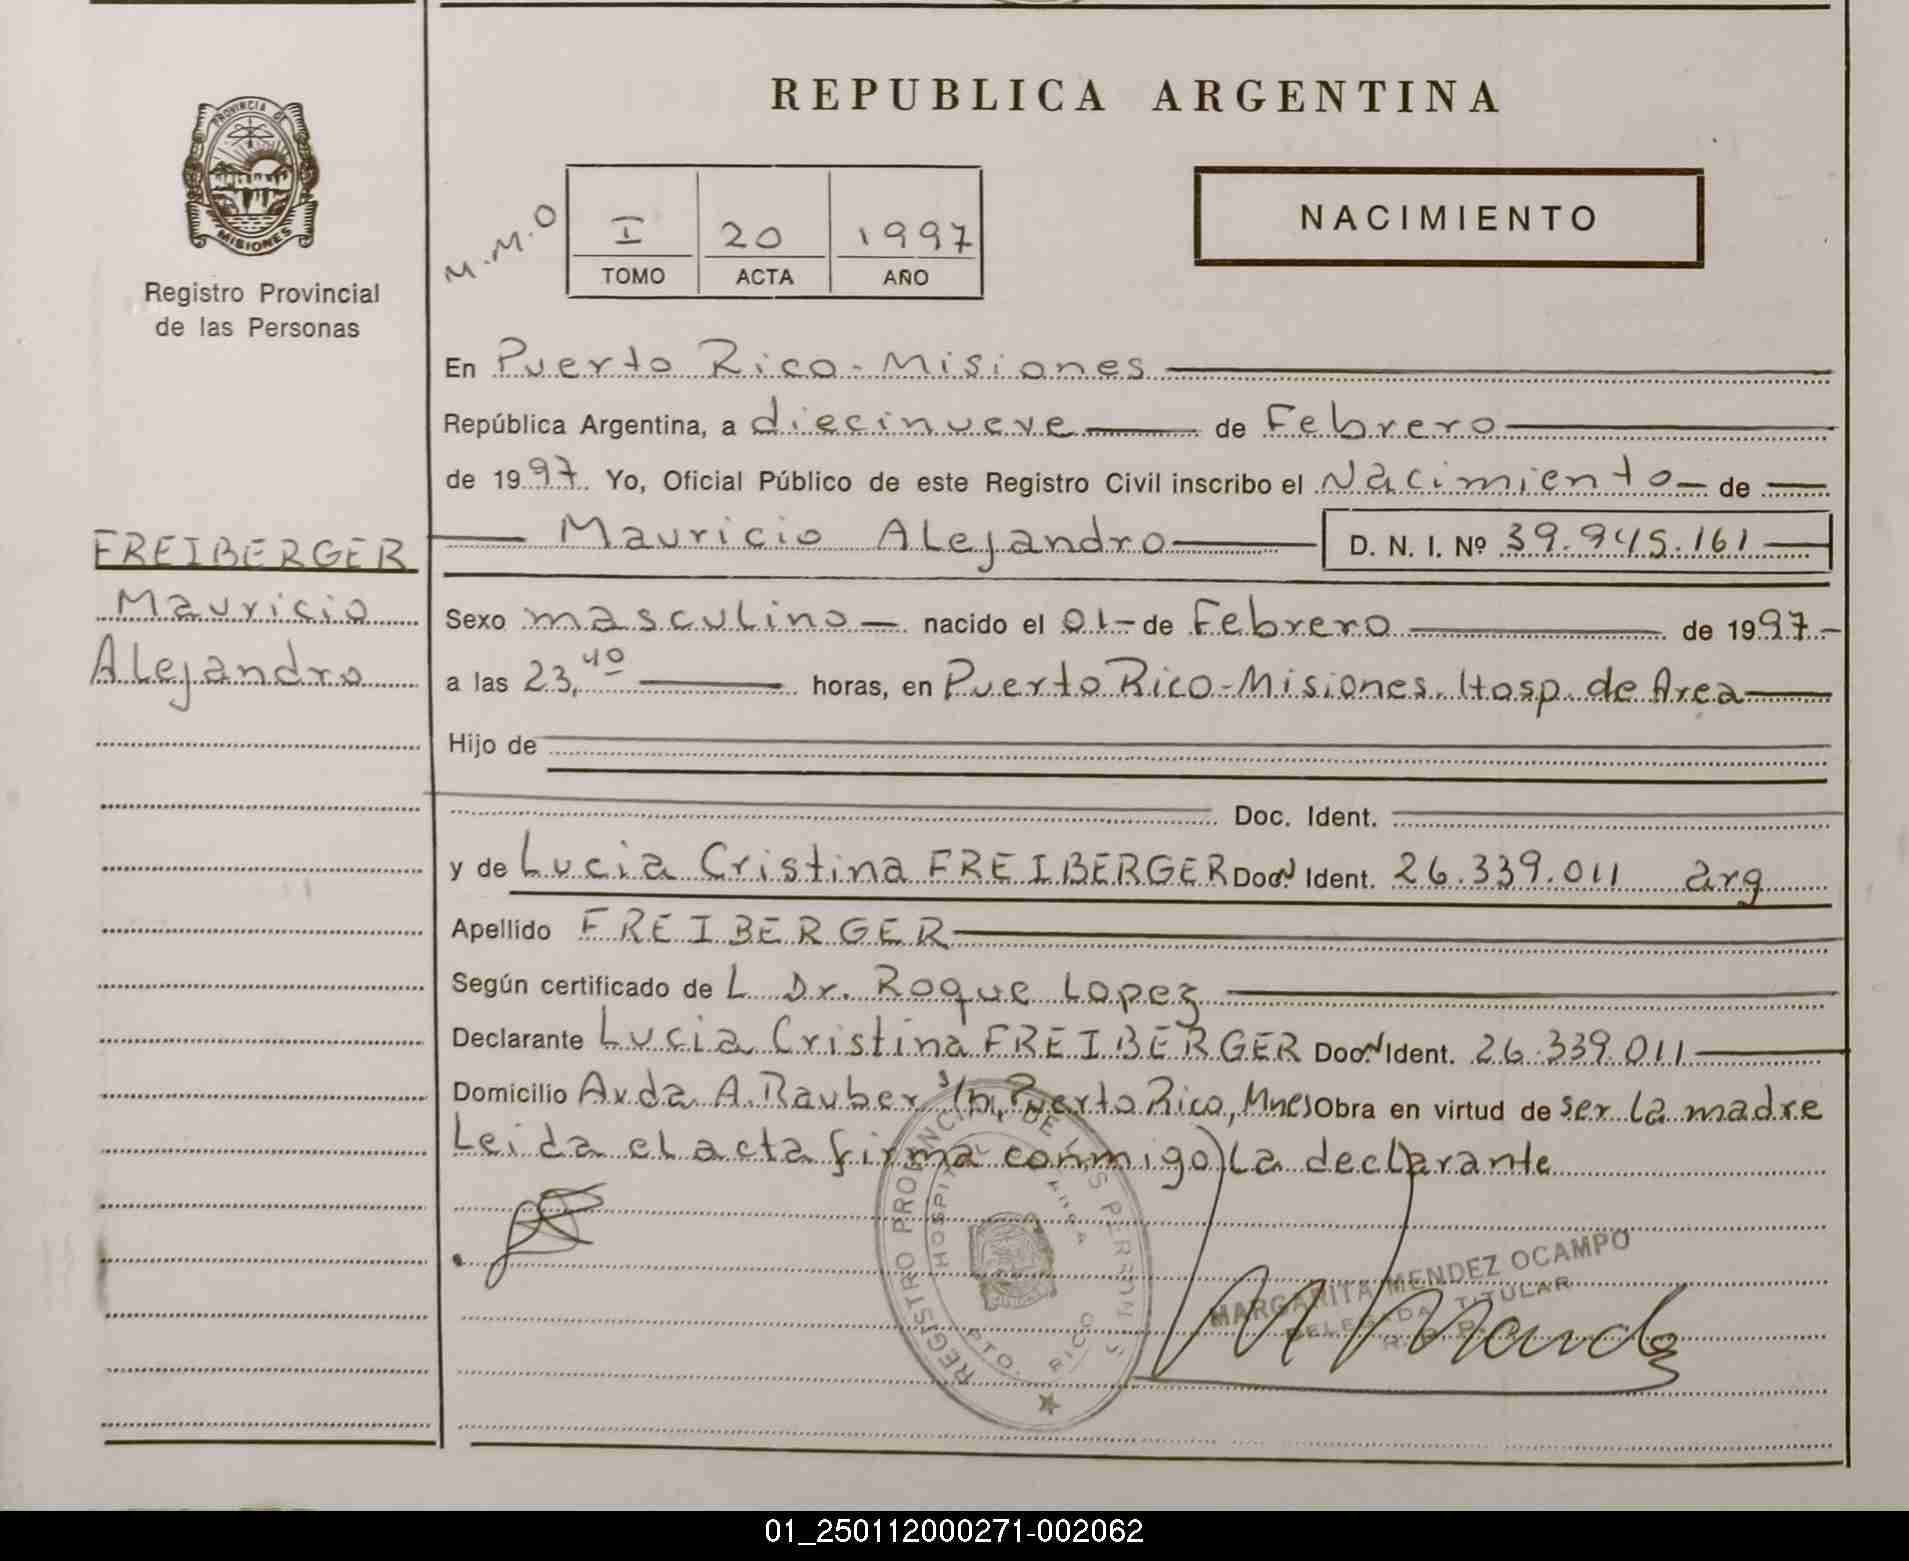 REPUBLICA ARGENTINA
PROVINCIA DE
MISIONES
Registro Provincial
de las Personas
M.M.O
I 20 1997
TOMO ACTA AÑO
NACIMIENTO
En Puerto Rico - Misiones
República Argentina, a diecinueve de Febrero
de 1997. Yo, Oficial Público de este Registro Civil inscribo el Nacimiento de
Mauricio Alejandro D. N. I. Nº 39.945.161
FREIBERGER
Mauricio
Alejandro
Sexo masculino nacido el 01 - de Febrero de 1997.
a las 23,40 horas, en Puerto Rico - Misiones. Hosp. de Area
Hijo de
Doc. Ident.
y de Lucia Cristina FREIBERGER Doc. Ident. 26.339.011 arg
Apellido FREIBERGER
Según certificado de L Dr. Roque Lopez
Declarante Lucia Cristina FREIBERGER Doc. Ident. 26.339.011
Domicilio Avda A. Rauber s/n, Puerto Rico, Mnes Obra en virtud de ser la madre
Leida el acta firma conmigo la declarante
REGISTRO PROVINCIAL DE LAS PERSONAS
HOSPITAL
PTO. RICO
MARGARITA MENDEZ OCAMPO
DELEGADA TITULAR
01_250112000271-002062